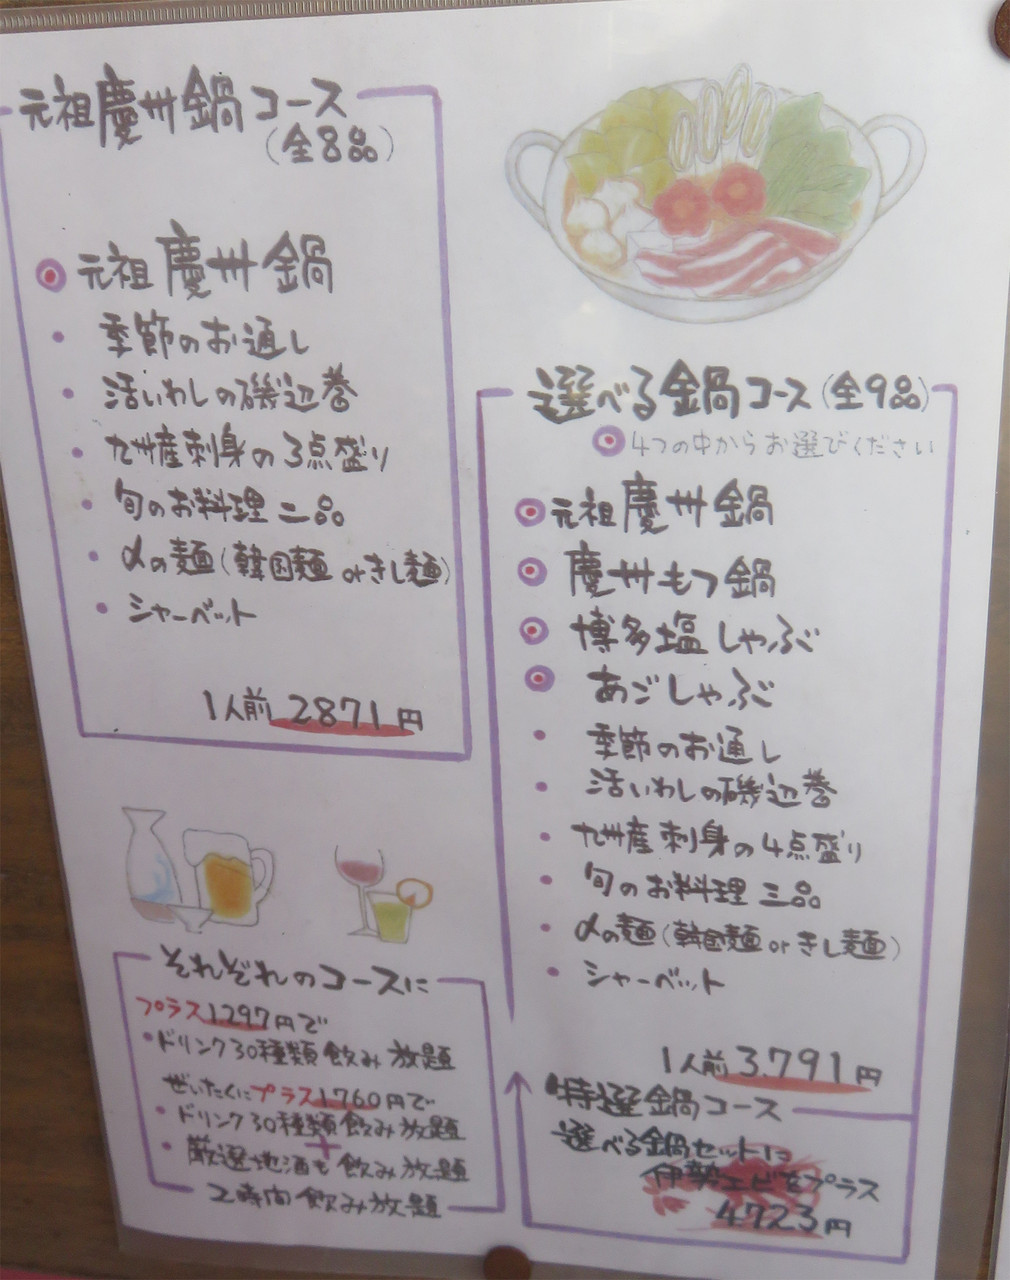 元祖慶州鍋コース
(全8品)
元祖慶州鍋
季節のお通し
活いわしの磯辺巻
九州産刺身の3点盛り
旬のお料理二品
〆の麺(韓国麺orきし麺)
シャーベット
1人前2871円
選べる鍋コース(全9品)
4つの中からお選びください
元祖慶州鍋
慶州もつ鍋
博多塩しゃぶ
あごしゃぶ
季節のお通し
活いわしの磯辺巻
九州産刺身の4点盛り
旬のお料理三品
〆の麺(韓国麺orきし麺)
シャーベット
1人前3.791円
特選鍋コース
選べる鍋セットに
伊勢エビをプラス
4723円
それぞれのコースに
プラス1.297円で
・ドリンク30種類飲み放題
ぜいたくにプラス1.760円で
・ドリンク30種類飲み放題
+
・厳選地酒も飲み放題
2時間飲み放題